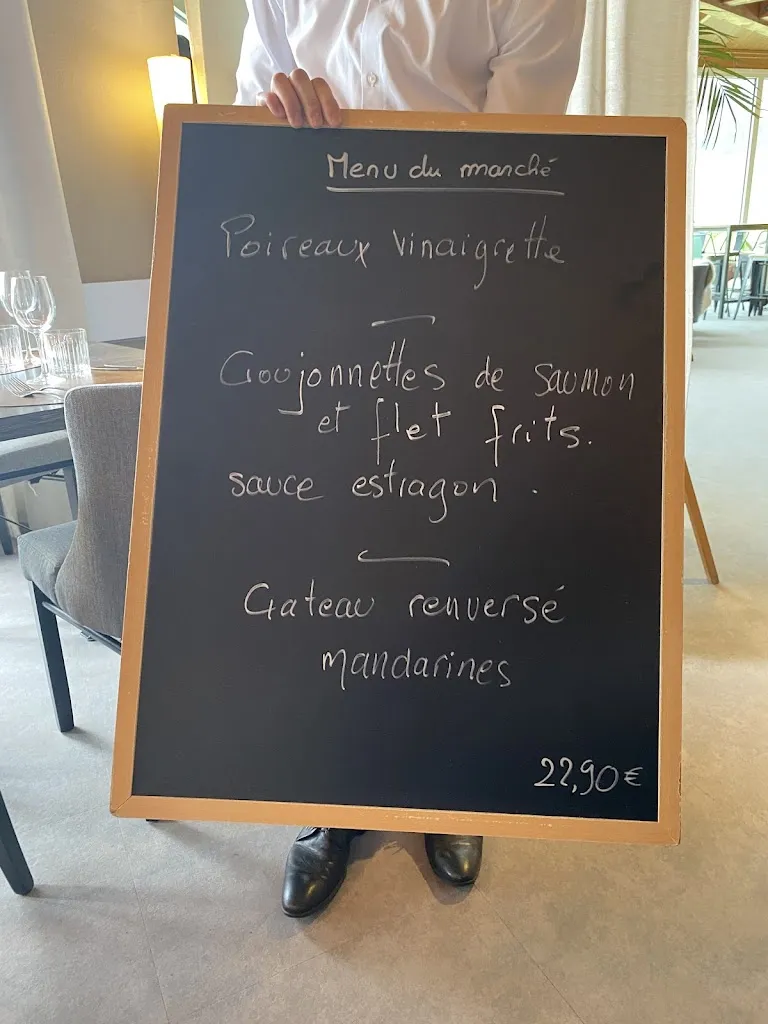 Menu du marché
Poireaux vinaigrette
Goujonnettes de saumon
et flet frits.
sauce estragon.
Gateau renversé
mandarines
22,90€